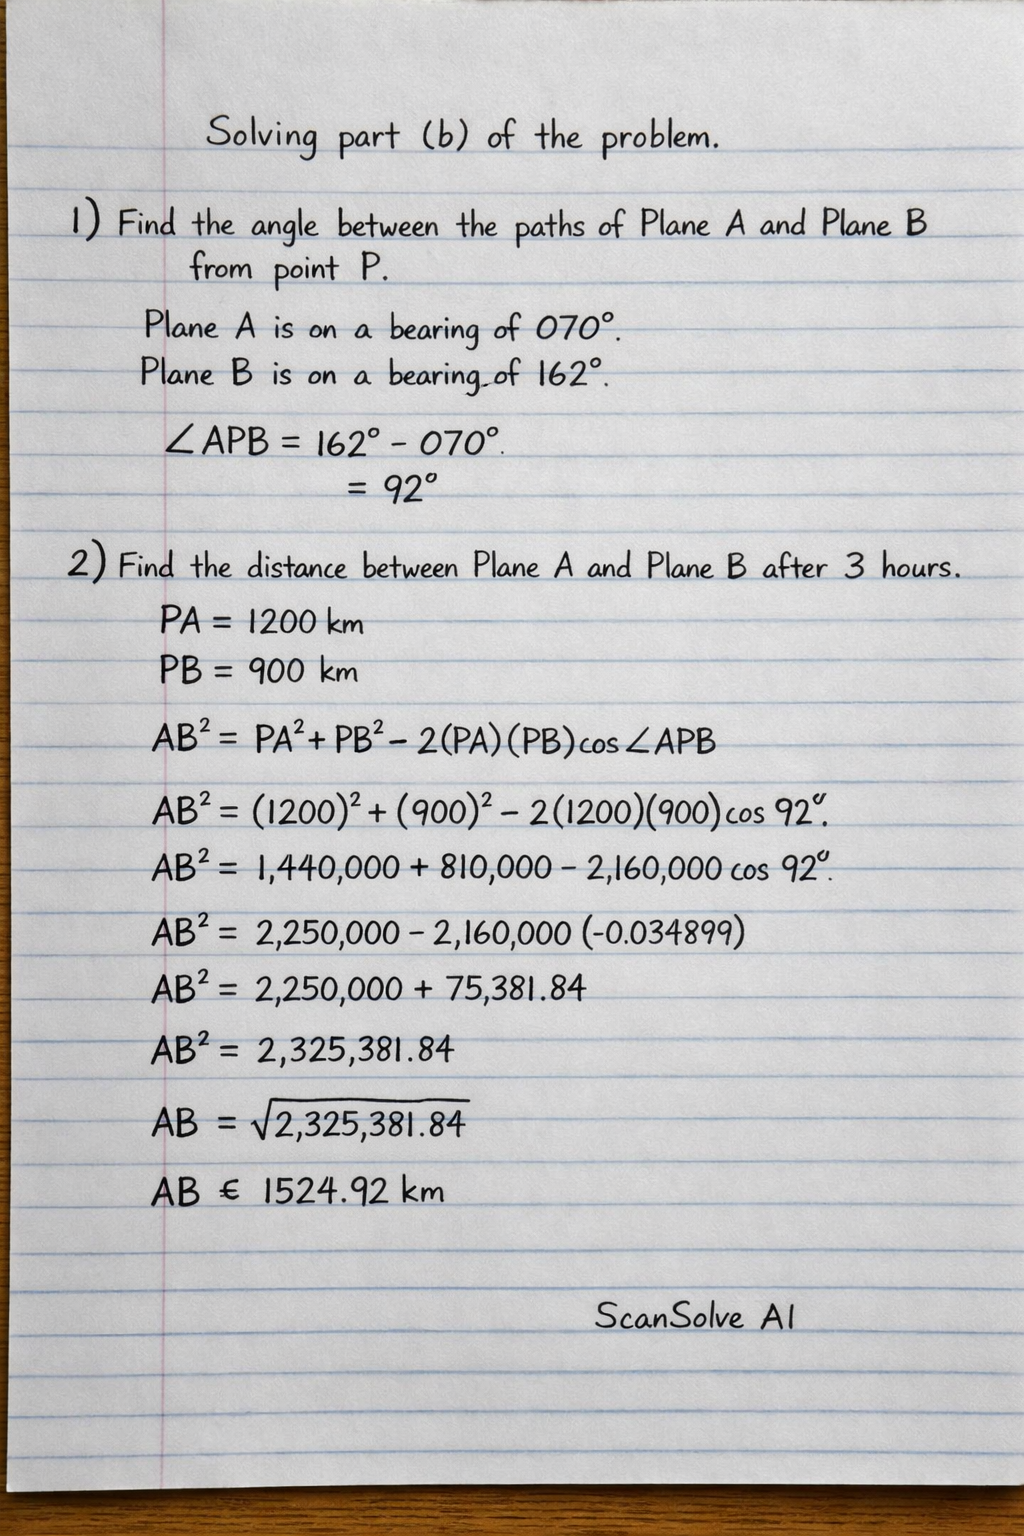 Solving part (b) of the problem.
1) Find the angle between the paths of Plane A and Plane B
from point P.
Plane A is on a bearing of 070°.
Plane B is on a bearing of 162°.
∠APB = 162° - 070°.
= 92°
2) Find the distance between Plane A and Plane B after 3 hours.
PA = 1200 km
PB = 900 km
AB² = PA² + PB² - 2(PA)(PB)cos∠APB
AB² = (1200)² + (900)² - 2(1200)(900)cos 92°.
AB² = 1,440,000 + 810,000 - 2,160,000 cos 92°.
AB² = 2,250,000 - 2,160,000 (-0.034899)
AB² = 2,250,000 + 75,381.84
AB² = 2,325,381.84
AB = √2,325,381.84
AB € 1524.92 km
ScanSolve AI